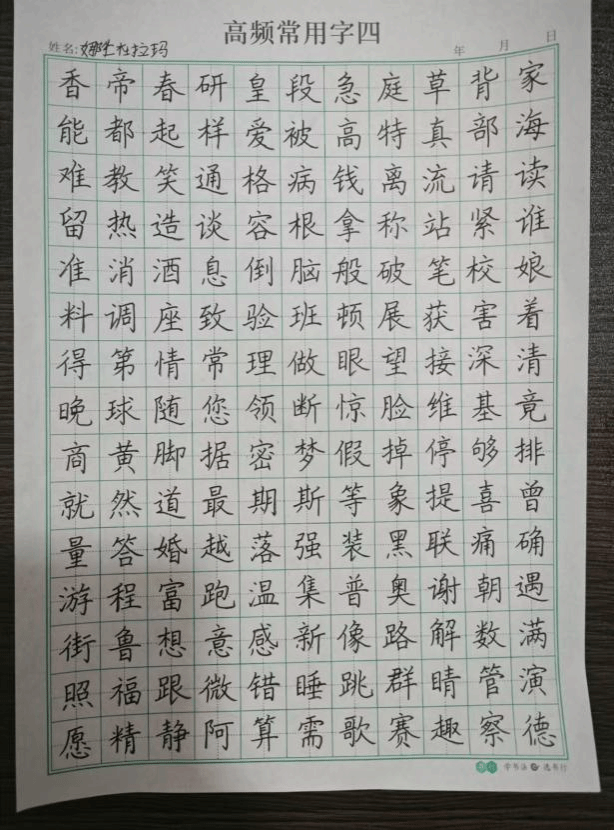 高频常用字四
姓名:娜仁杜拉玛 年 月 日
香帝春研皇段急庭草背家
能都起样爱被高特真部海
难教笑通格病钱离流请读
留热造谈容根拿称站紧谁
准消酒息倒脑般破笔校娘
料调座致验班顿展获害着
得第情常理做眼望接深清
晚球随您领断惊脸维基竟
商黄脚据密梦假掉停够排
就然道最期斯等象提喜曾
量答婚越落强装黑联痛确
游程富跑温集普奥谢朝遇
街鲁想意感新像路解数满
照福跟微错睡跳群睛管演
愿精静阿算需歌赛趣察德
学书法 选书行